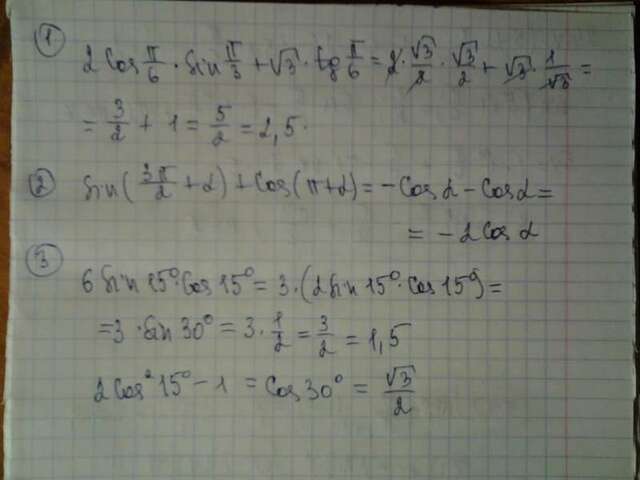 ① 2 cos π/6 · sin π/3 + √3 · tg π/6 = 2 · √3/2 · √3/2 + √3 · 1/√3 =
= 3/2 + 1 = 5/2 = 2,5.
② sin(3π/2 + α) + cos(π + α) = - cos α - cos α =
= - 2 cos α
③ 6 sin 15° · cos 15° = 3 · (2 sin 15° · cos 15°) =
= 3 · sin 30° = 3 · 1/2 = 3/2 = 1,5
2 cos² 15° - 1 = cos 30° = √3/2